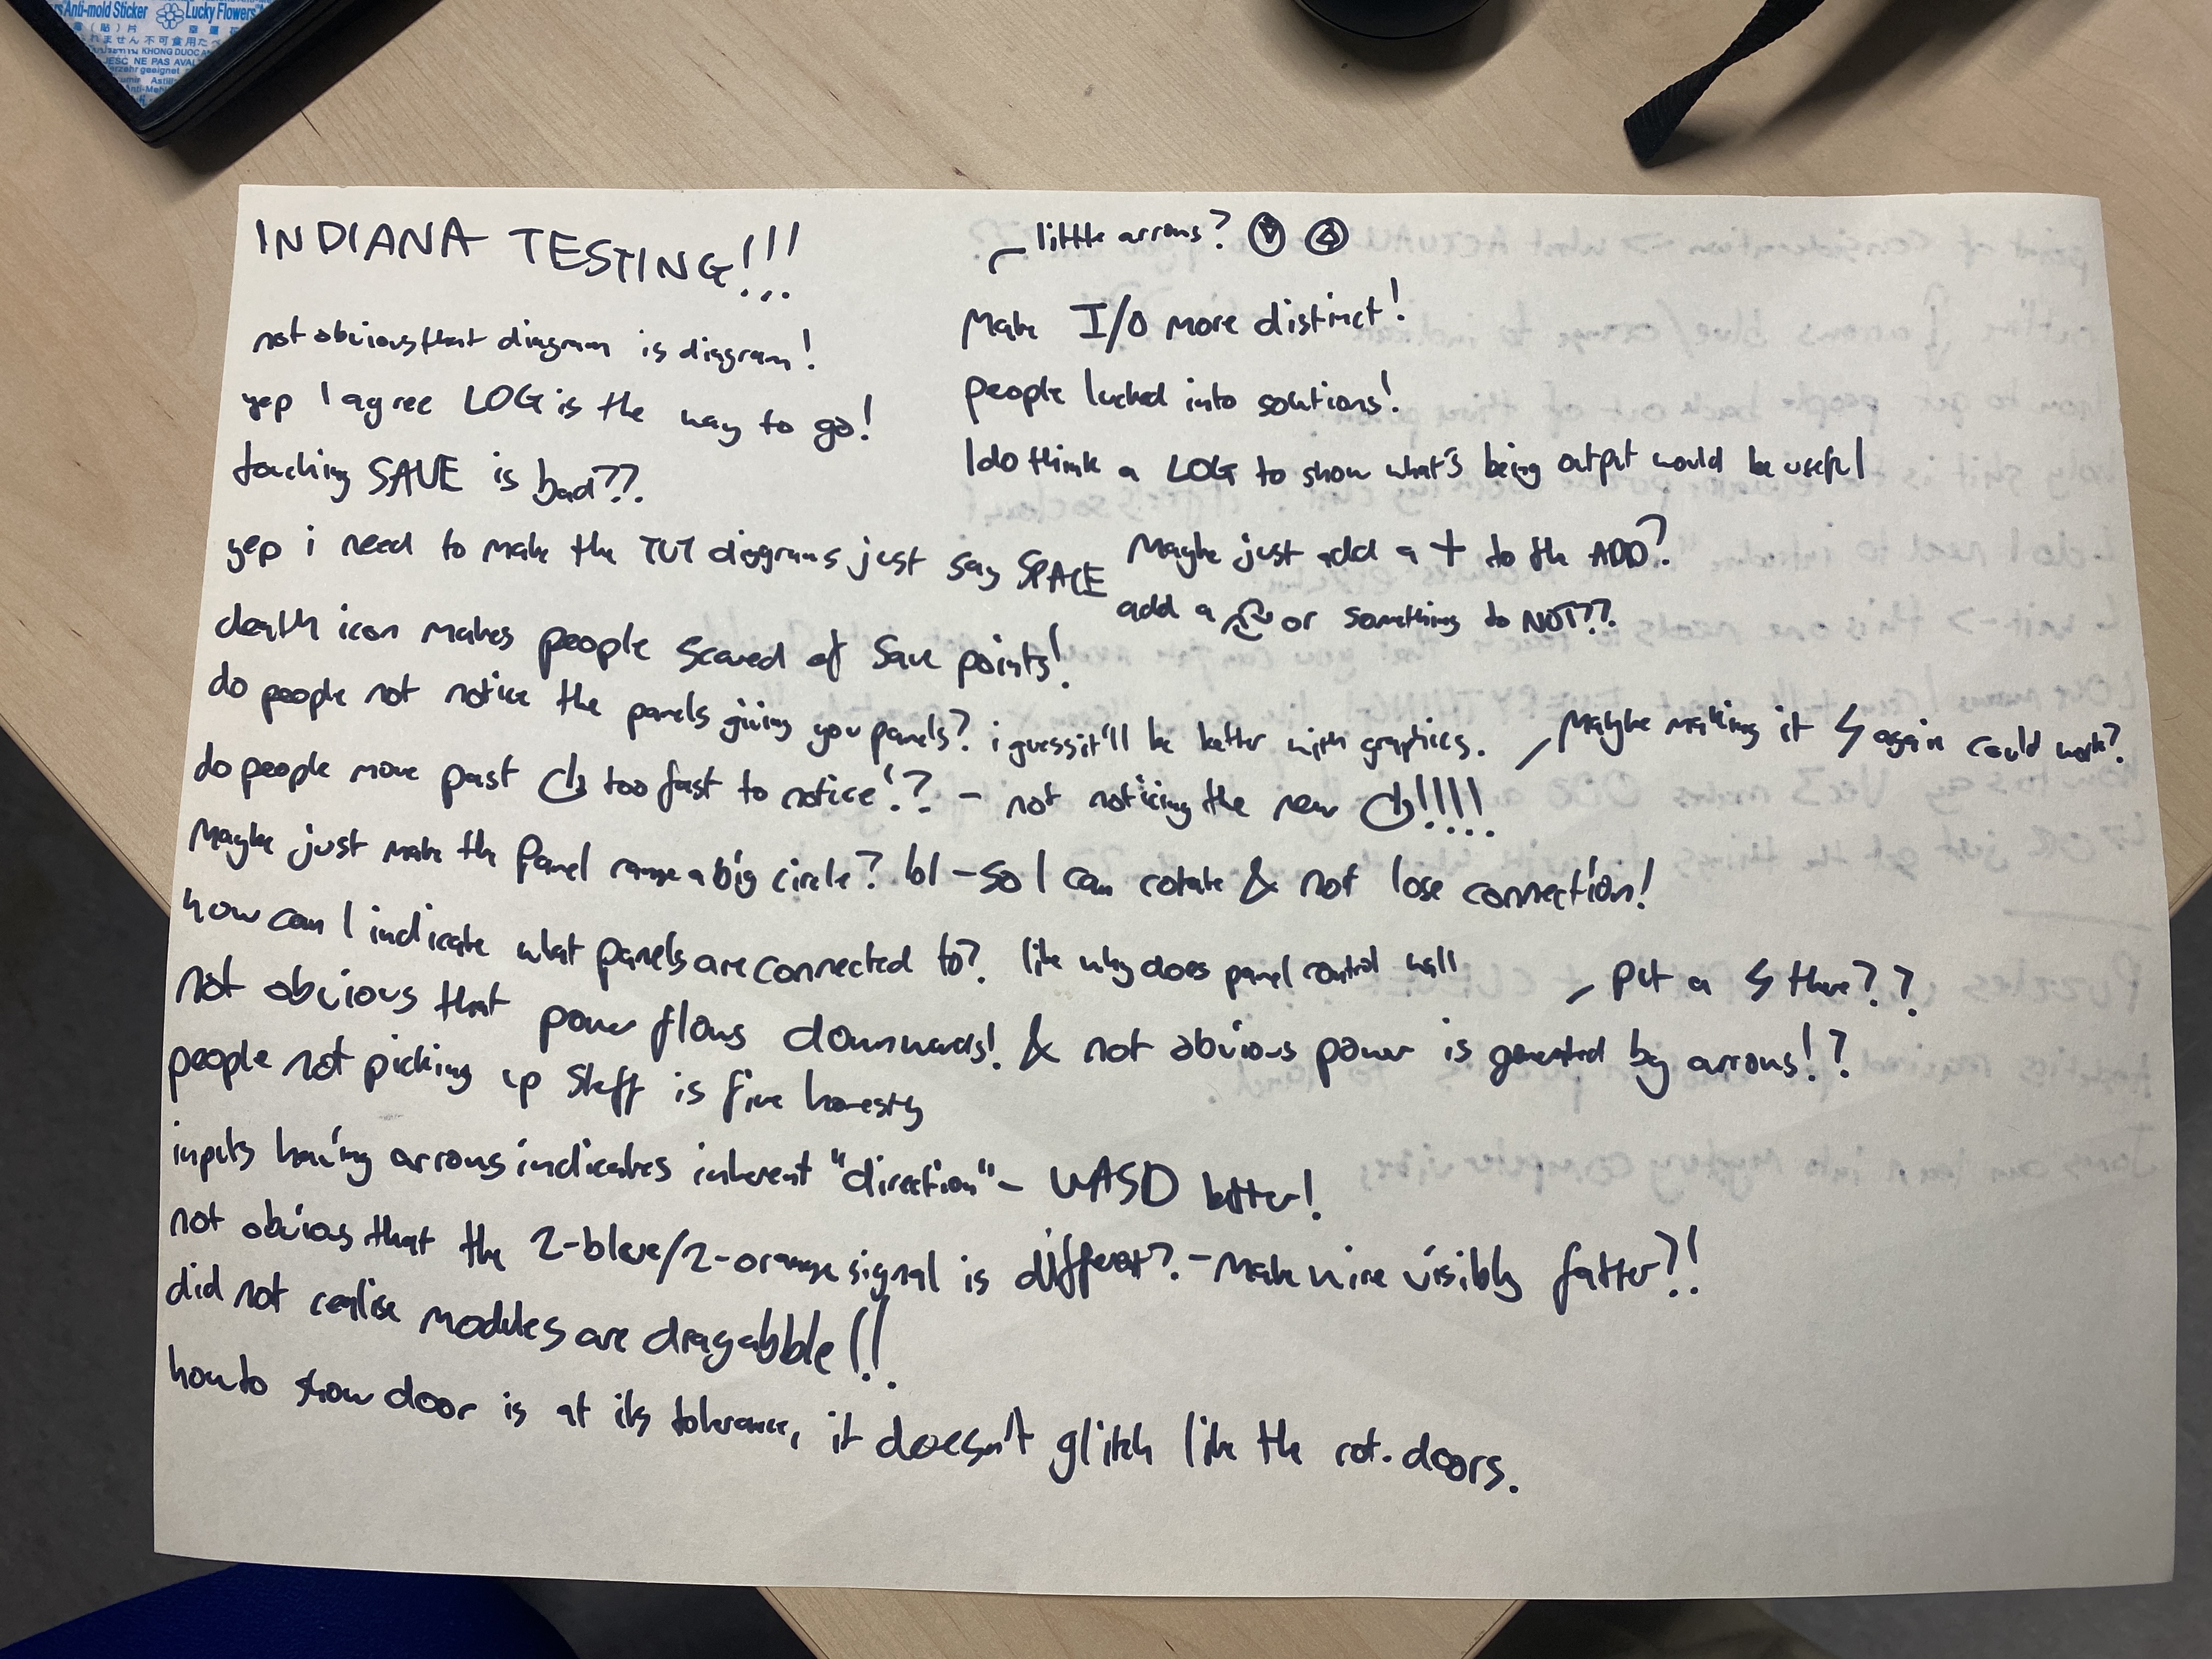 INDIANA TESTING!!!
not obvious that diagram is diagram!
yep I agree LOG is the way to go!
touching SAVE is bad??
yep i need to make the TUT diagrams just say SPACE
death icon makes people scared of save points!
do people not notice the panels giving you panels? i guess it'll be better with graphics.
do people move past ⏻ too fast to notice!? - not noticing the new ⏻!!!!!
Maybe making it ϟ again could work?
Maybe just make the panel range a big circle? lol - so I can rotate & not lose connection!
how can I indicate what panels are connected to? like why does panel control wall
not obvious that power flows downwards! & not obvious power is generated by arrows!?
put a ϟ there??
people not picking up staff is fine honesty
inputs having arrows indicates inherent "direction" - WASD better!
not obvious that the 2-blue/2-orange signal is different? - Make wire visibly fatter?!
did not realise modules are dragabble!!
how to show door is at its tolerance, it doesn't glitch like the rot. doors.
little arrows?
Make I/O more distinct!
people lucked into solutions!
I do think a LOG to show what's being output would be useful
Maybe just add a + to the ADD?
add a or something to NOT??
Anti-mold Sticker
Lucky Flowers
KHONG DUOC
NE PAS AVAL